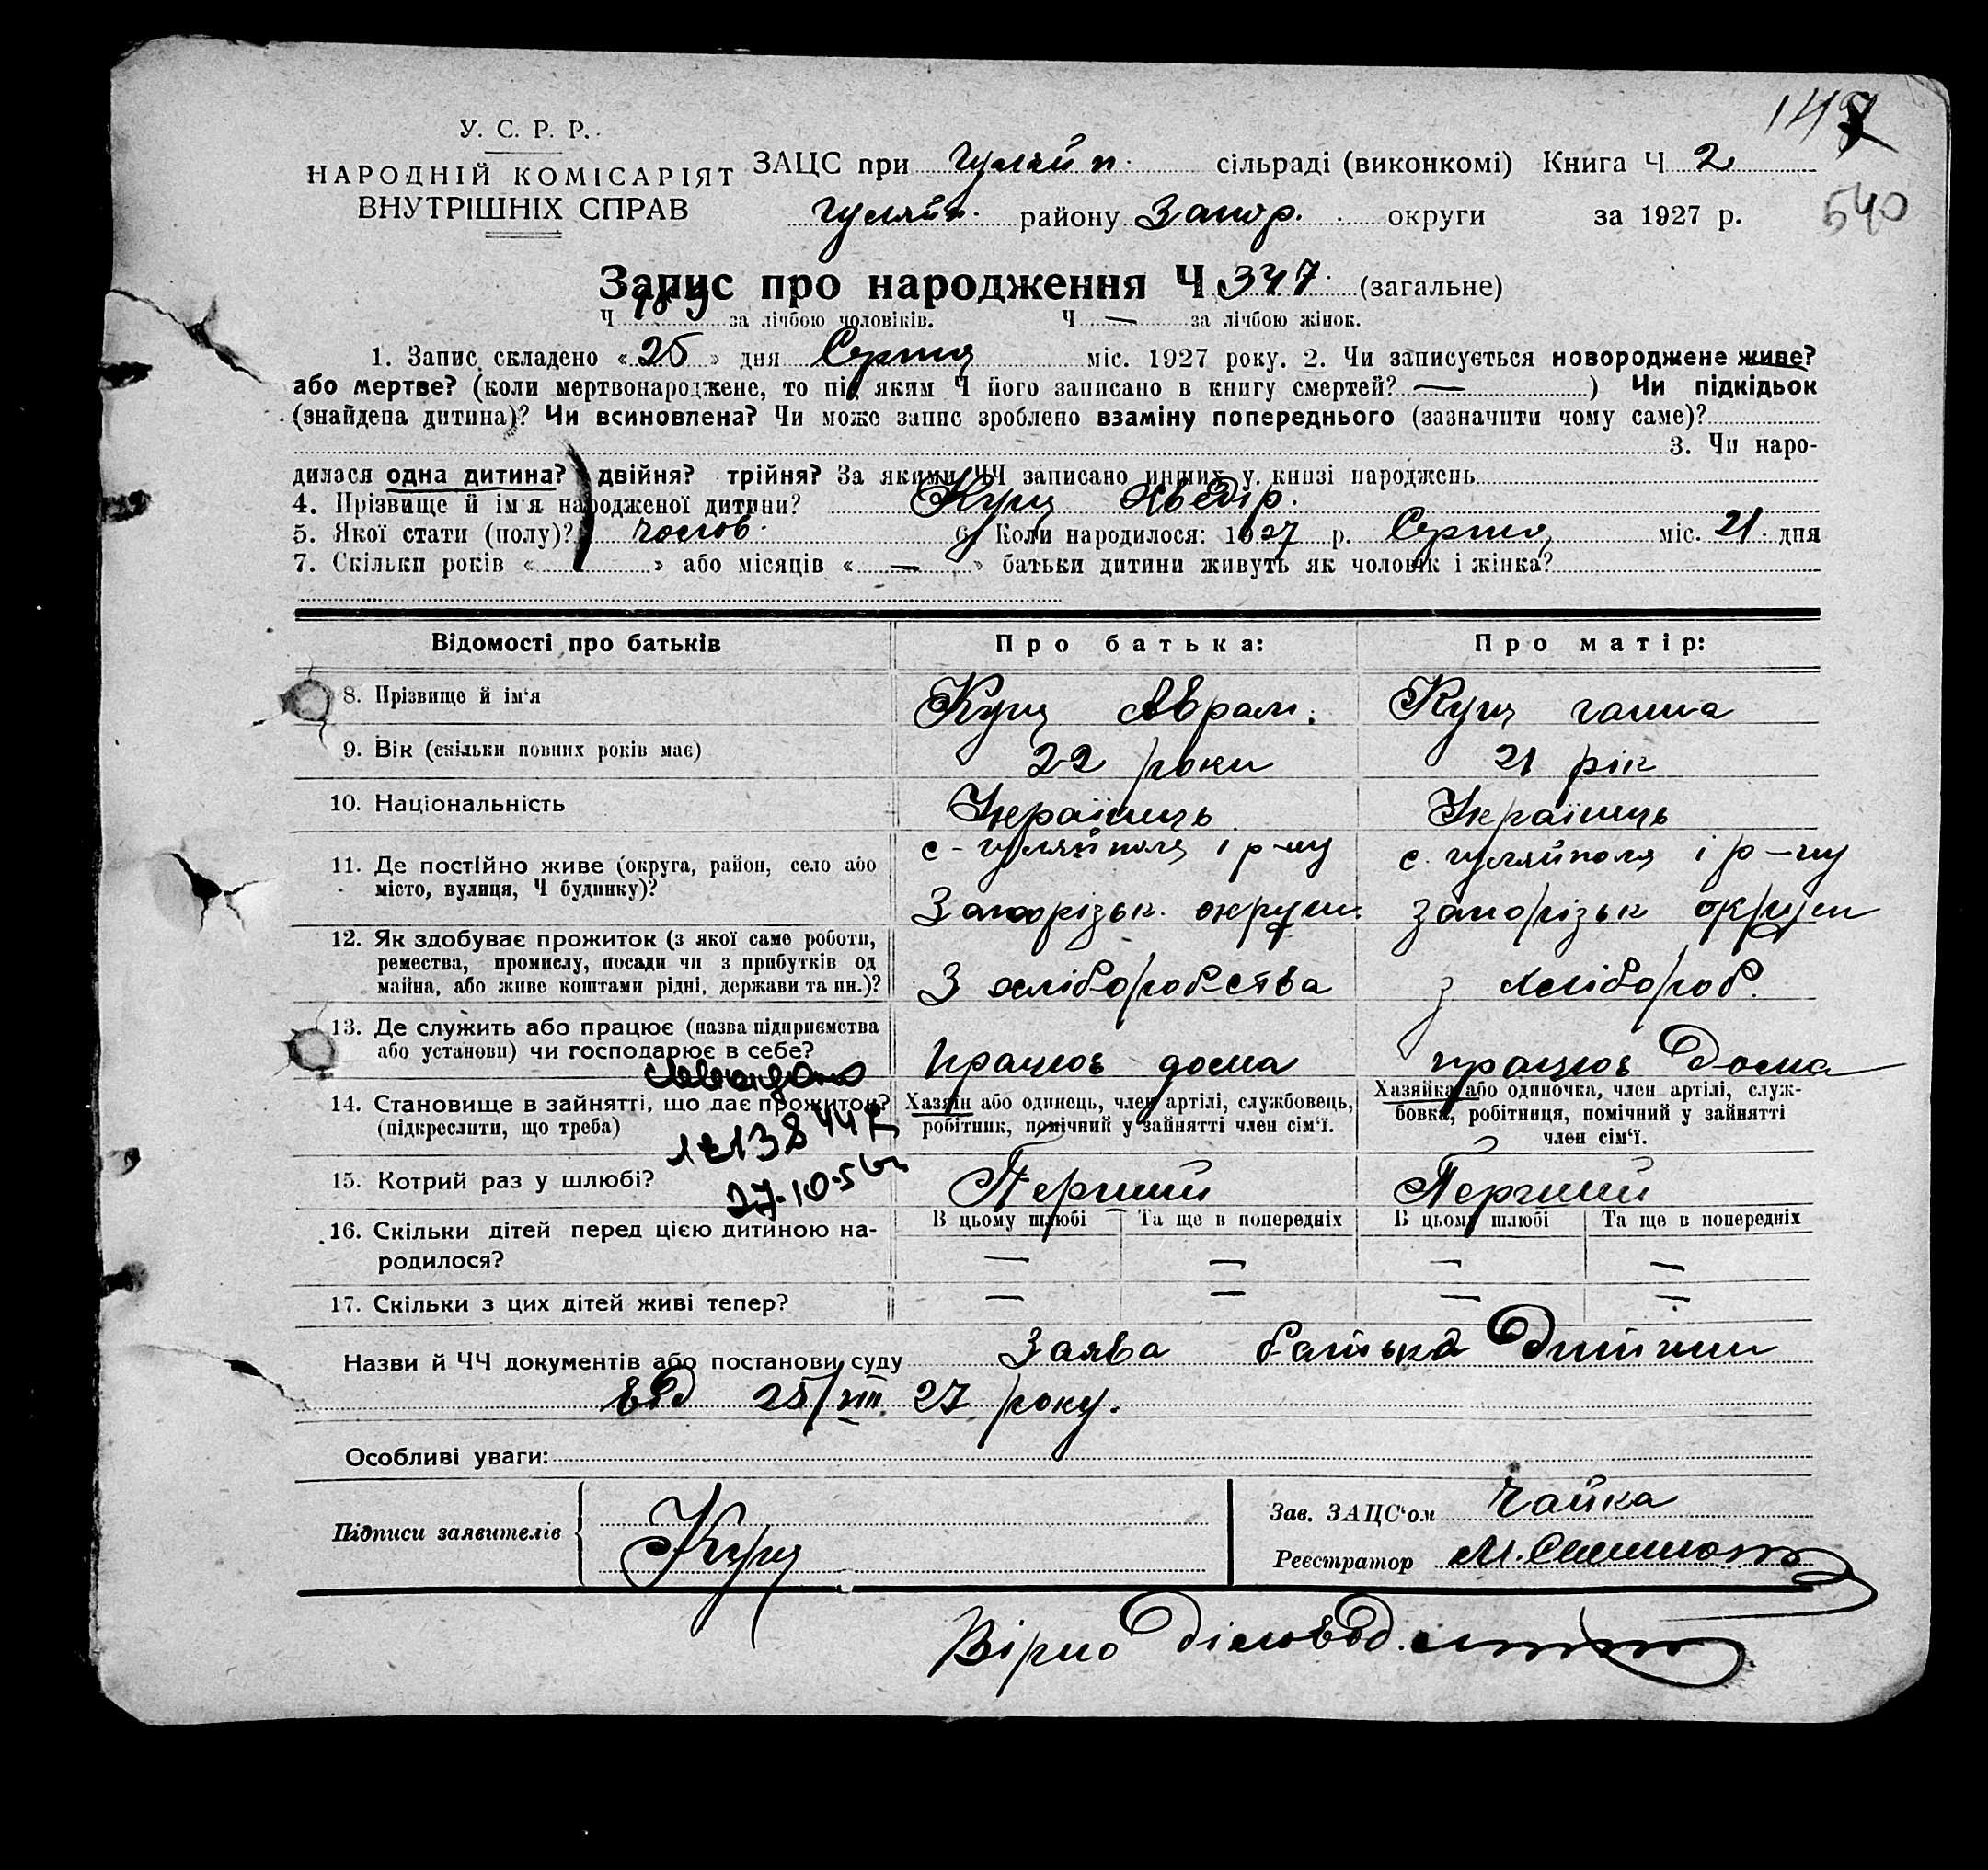 147
У. С. Р. Р.
НАРОДНІЙ КОМІСАРІЯТ
ВНУТРІШНІХ СПРАВ
ЗАЦС при Гуляйп. сільраді (виконкомі) Книга Ч 2
Гуляйп. району Запор. округи за 1927 р.
540
Запис про народження Ч 347. (загальне)
Ч 189 за лічбою чоловіків. Ч — за лічбою жінок.
1. Запис складено «25» дня Серпня міс. 1927 року. 2. Чи записується новороджене живе?
або мертве? (коли мертвонароджене, то під яким Ч його записано в книгу смертей? — ) Чи підкідьок
(знайдена дитина)? Чи всиновлена? Чи може запис зроблено взаміну попереднього (зазначити чому саме)?
3. Чи наро-
дилася одна дитина? двійня? трійня? За якими ЧЧ записано инших у книзі народжень
4. Прізвище й ім'я народженої дитини? Кущ Хведір.
5. Якої стати (полу)? чолов. 6. Коли народилося: 1927 р. Серпня міс. 21 дня
7. Скільки років « » або місяців « — » батьки дитини живуть як чоловік і жінка?
Відомості про батьків Про батька: Про матір:
8. Прізвище й ім'я Кущ Аврам. Кущ ганна
9. Вік (скільки повних років має) 22 роки 21 рік
10. Національність Українець Українець
11. Де постійно живе (округа, район, село або
місто, вулиця, Ч будинку)?
с-гуляйполя і р-ну с. гуляйполя і р-ну
Запорізьк. округи. запорізьк округи
12. Як здобуває прожиток (з якої саме роботи,
ремества, промислу, посади чи з прибутків од
майна, або живе коштами рідні, держави та ин.)?
З хліборобства з хлібороб.
13. Де служить або працює (назва підприємства
або установи) чи господарює в себе?
працює дома працює дома
14. Становище в зайнятті, що дає прожиток?
(підкреслити, що треба)
Хазяїн або одинець, член артілі, службовець,
робітник, помічний у зайнятті член сім'ї.
Хазяйка або одиночка, член артілі, служ-
бовка, робітниця, помічний у зайнятті
член сім'ї.
27.10.56
15. Котрий раз у шлюбі? Перший Перший
16. Скільки дітей перед цією дитиною на-
родилося?
В цьому шлюбі Та ще в попередніх В цьому шлюбі Та ще в попередніх
— — — —
17. Скільки з цих дітей живі тепер? — — — —
Назви й ЧЧ документів або постанови суду Заява батька дитини
від 25/VIII 27 року.
Особливі уваги:
Підписи заявителів Кущ
Зав. ЗАЦС'ом Чайка
Реєстратор М.
Вірно діловод.